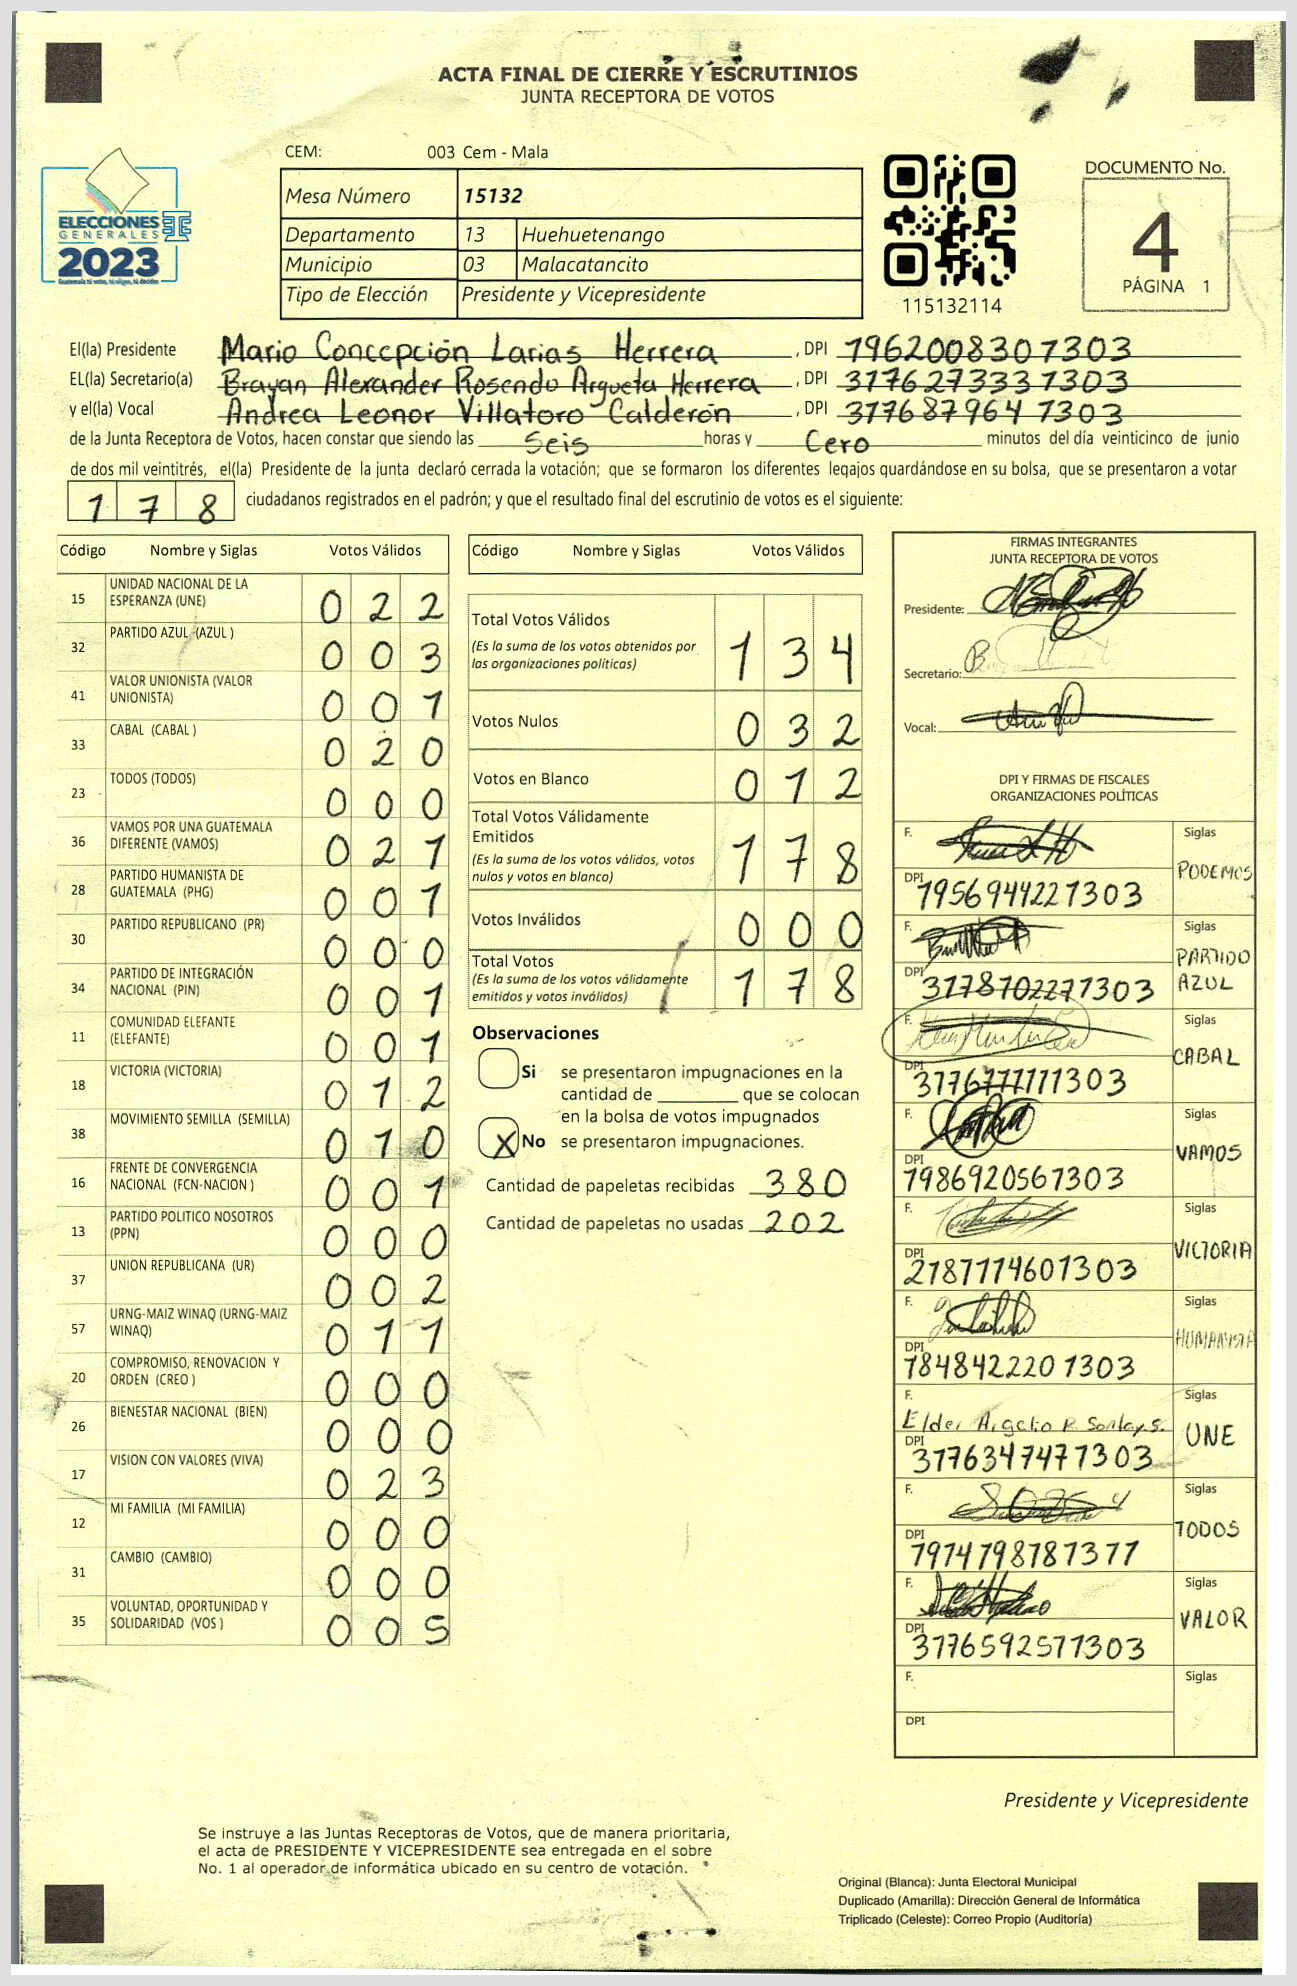 ACTA FINAL DE CIERRE Y ESCRUTINIOS
JUNTA RECEPTORA DE VOTOS
CEM: 003 Cem - Mala
ELECCIONES
GENERALES
2023
Mesa Número 15132
Departamento 13 Huehuetenango
Municipio 03 Malacatancito
Tipo de Elección Presidente y Vicepresidente
115132114
DOCUMENTO No.
4
PÁGINA 1
El(la) Presidente Mario Concepción Larias Herrera , DPI 1962008301303
EL(la) Secretario(a) Brayan Alexander Rosendo Argueta Herrera , DPI 3176273331303
y el(la) Vocal Andrea Leonor Villatoro Calderón , DPI 3176879641303
de la Junta Receptora de Votos, hacen constar que siendo las Seis horas y Cero minutos del día veinticinco de junio
de dos mil veintitrés, el(la) Presidente de la junta declaró cerrada la votación; que se formaron los diferentes legajos quardándose en su bolsa, que se presentaron a votar
1 7 8 ciudadanos registrados en el padrón; y que el resultado final del escrutinio de votos es el siguiente:
Código Nombre y Siglas Votos Válidos
15 UNIDAD NACIONAL DE LA ESPERANZA (UNE) 0 2 2
32 PARTIDO AZUL (AZUL ) 0 0 3
41 VALOR UNIONISTA (VALOR UNIONISTA) 0 0 1
33 CABAL (CABAL ) 0 2 0
23 TODOS (TODOS) 0 0 0
36 VAMOS POR UNA GUATEMALA DIFERENTE (VAMOS) 0 2 1
28 PARTIDO HUMANISTA DE GUATEMALA (PHG) 0 0 1
30 PARTIDO REPUBLICANO (PR) 0 0 0
34 PARTIDO DE INTEGRACIÓN NACIONAL (PIN) 0 0 1
11 COMUNIDAD ELEFANTE (ELEFANTE) 0 0 1
18 VICTORIA (VICTORIA) 0 1 2
38 MOVIMIENTO SEMILLA (SEMILLA) 0 1 0
16 FRENTE DE CONVERGENCIA NACIONAL (FCN-NACION ) 0 0 1
13 PARTIDO POLITICO NOSOTROS (PPN) 0 0 0
37 UNION REPUBLICANA (UR) 0 0 2
57 URNG-MAIZ WINAQ (URNG-MAIZ WINAQ) 0 1 1
20 COMPROMISO, RENOVACION Y ORDEN (CREO ) 0 0 0
26 BIENESTAR NACIONAL (BIEN) 0 0 0
17 VISION CON VALORES (VIVA) 0 2 3
12 MI FAMILIA (MI FAMILIA) 0 0 0
31 CAMBIO (CAMBIO) 0 0 0
35 VOLUNTAD, OPORTUNIDAD Y SOLIDARIDAD (VOS ) 0 0 5
Código Nombre y Siglas Votos Válidos
Total Votos Válidos 1 3 4
(Es la suma de los votos obtenidos por
las organizaciones politicas)
Votos Nulos 0 3 2
Votos en Blanco 0 1 2
Total Votos Válidamente
Emitidos 1 7 8
(Es la suma de los votos válidos, votos
nulos y votos en blanco)
Votos Inválidos 0 0 0
Total Votos 1 7 8
(Es la suma de los votos válidamente
emitidos y votos inválidos)
Observaciones
Si se presentaron impugnaciones en la
cantidad de ________ que se colocan
en la bolsa de votos impugnados
X No se presentaron impugnaciones.
Cantidad de papeletas recibidas 380
Cantidad de papeletas no usadas 202
FIRMAS INTEGRANTES
JUNTA RECEPTORA DE VOTOS
Presidente:
Secretario:
Vocal:
DPI Y FIRMAS DE FISCALES
ORGANIZACIONES POLÍTICAS
F. Siglas
DPI 1956944221303 PODEMOS
F. Siglas
DPI 3178702271303 PARTIDO AZUL
F. Siglas
DPI CABAL
F. Siglas
DPI 1986920561303 VAMOS
F. Siglas
DPI 2187114601303 VICTORIA
F. Siglas
DPI 1848422201303 HUMANISTA
F. Elder Argelio R. Siglas
DPI 3176347471303 UNE
F. Siglas
DPI 1974798781311 TODOS
F. Siglas
DPI 3176592571303 VALOR
F. Siglas
DPI
Presidente y Vicepresidente
Se instruye a las Juntas Receptoras de Votos, que de manera prioritaria,
el acta de PRESIDENTE Y VICEPRESIDENTE sea entregada en el sobre
No. 1 al operador de informática ubicado en su centro de votación.
Original (Blanca): Junta Electoral Municipal
Duplicado (Amarilla): Dirección General de Informática
Triplicado (Celeste): Correo Propio (Auditoría)